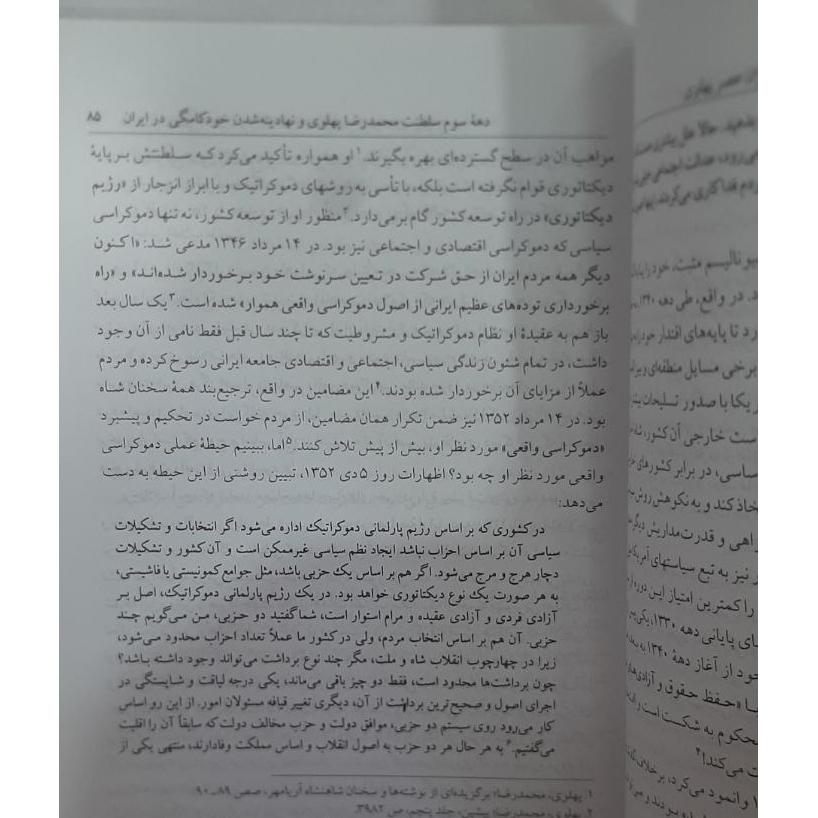 دههٔ سوم سلطنت محمدرضا پهلوی و نهادینه‌شدن خودکامگی در ایران ۸۵
مواهب آن در سطح گسترده‌ای بهره بگیرند.۱ او همواره تأکید می‌کرد که سلطنتش بر پایهٔ
دیکتاتوری قوام نگرفته است بلکه، با تأسی به روشهای دموکراتیک و با ابراز انزجار از «رژیم
دیکتاتوری» در راه توسعه کشور گام برمی‌دارد.۲ منظور او از توسعه کشور، نه تنها دموکراسی
سیاسی که دموکراسی اقتصادی و اجتماعی نیز بود. در ۱۴ مرداد ۱۳۴۶ مدعی شد: «اکنون
دیگر همه مردم ایران از حق شرکت در تعیین سرنوشت خود برخوردار شده‌اند» و «راه
برخورداری توده‌های عظیم ایرانی از اصول دموکراسی واقعی هموار» شده است.۳ یک سال بعد
باز هم به عقیدهٔ او نظام دموکراتیک و مشروطیت که تا چند سال قبل فقط نامی از آن وجود
داشت، در تمام شئون زندگی سیاسی، اجتماعی و اقتصادی جامعه ایرانی رسوخ کرده و مردم
عملاً از مزایای آن برخوردار شده بودند.۴ این مضامین در واقع، ترجیع‌بند همهٔ سخنان شاه
بود. در ۱۴ مرداد ۱۳۵۲ نیز ضمن تکرار همان مضامین، از مردم خواست در تحکیم و پیشبرد
«دموکراسی واقعی» مورد نظر او، بیش از پیش تلاش کنند.۵ اما، ببینیم حیطهٔ عملی دموکراسی
واقعی مورد نظر او چه بود؟ اظهارات روز ۵ دی ۱۳۵۲، تبیین روشنی از این حیطه به دست
می‌دهد:
در کشوری که بر اساس رژیم پارلمانی دموکراتیک اداره می‌شود اگر انتخابات و تشکیلات
سیاسی آن بر اساس احزاب نباشد ایجاد نظم سیاسی غیرممکن است و آن کشور و تشکیلات
دچار هرج و مرج می‌شود. اگر هم بر اساس یک حزبی باشد، مثل جوامع کمونیستی یا فاشیستی،
به هر صورت یک نوع دیکتاتوری خواهد بود. در یک رژیم پارلمانی دموکراتیک، اصل بر
آزادی فردی و آزادی عقیده و مرام استوار است، شما گفتید دو حزبی، من می‌گویم چند
حزبی. آن هم بر اساس انتخاب مردم، ولی در کشور ما عملاً تعداد احزاب محدود می‌شود،
زیرا در چهارچوب انقلاب شاه و ملت، مگر چند نوع برداشت می‌تواند وجود داشته باشد؟
چون برداشت‌ها محدود است، فقط دو چیز باقی می‌ماند، یکی درجه لیاقت و شایستگی در
اجرای اصول و صحیح‌ترین برداشت از آن، دیگری تغییر قیافه مسئولان امور. از این رو اساس
کار می‌رود روی سیستم دو حزبی، موافق دولت و حزب مخالف دولت که سابقاً آن را اقلیت
می‌گفتیم.۶ به هر حال هر دو حزب به اصول انقلاب و اساس مملکت وفادارند، منتهی یکی از
۱. پهلوی، محمدرضا؛ برگزیده‌ای از نوشته‌ها و سخنان شاهنشاه آریامهر، صص ۸۹ـ۹۰.
۲. پهلوی، محمدرضا؛ پیشین، جلد پنجم، ص ۳۹۸۲.